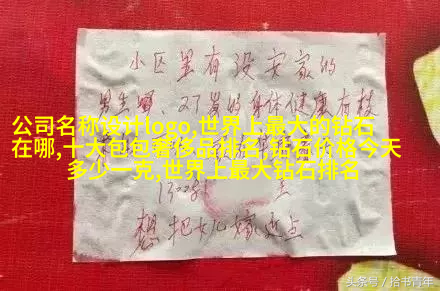 小区里有没安家的
男生,27岁的身体健康有技
公司名称设计logo,世界上最大的钻石
在哪,十大包包奢侈品排名,钻石价格今天
多少一克,世界上最大钻石排名
想把女儿嫁近点
头条号／拾书青年